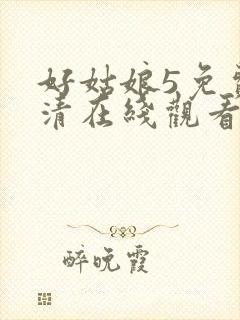 好姑娘5免費
清在綫觀看
醉晚霞